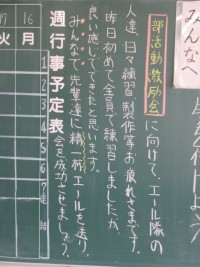 みんなへ
部活動激励会に向けて、エール隊の
人達、日々練習、制作等お疲れさまです。
昨日初めて全員で練習しましたが、
良い感じでできたと思います。
みんなで、先輩達に精一杯エールを送り、
会を成功させましょう。
週行事予定表
1 2 3 4 5 6 7
16 月
17 火